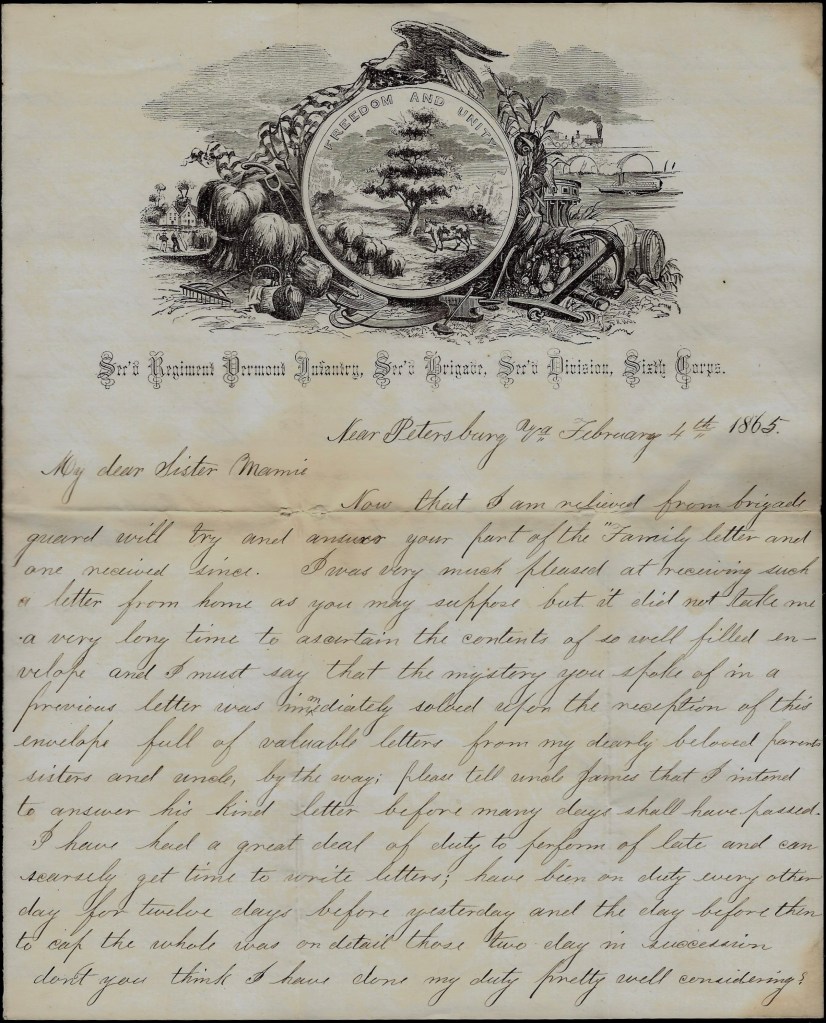 FREEDOM AND UNITY
Sec'd Regiment Vermont Infantry, Sec'd Brigade, Sec'd Division, Sixth Corps.
Near Petersburg Va February 4th 1865.
My dear Sister Mamie
Now that I am relieved from brigade
guard will try and answer your part of the "Family letter and
one received since. I was very much pleased at receiving such
a letter from home as you may suppose but it did not take me
a very long time to ascertain the contents of so well filled en-
velope and I must say that the mystery you spoke of in a
previous letter was immediately solved upon the reception of this
envelope full of valuable letters from my dearly beloved parents
sisters and uncle, by the way; please tell uncle James that I intend
to answer his kind letter before many days shall have passed.
I have had a great deal of duty to perform of late and can
scarsely get time to write letters; have been on duty every other
day for twelve days before yesterday and the day before then
to cap the whole was on detail those two day in succession
don't you think I have done my duty pretty well considering?